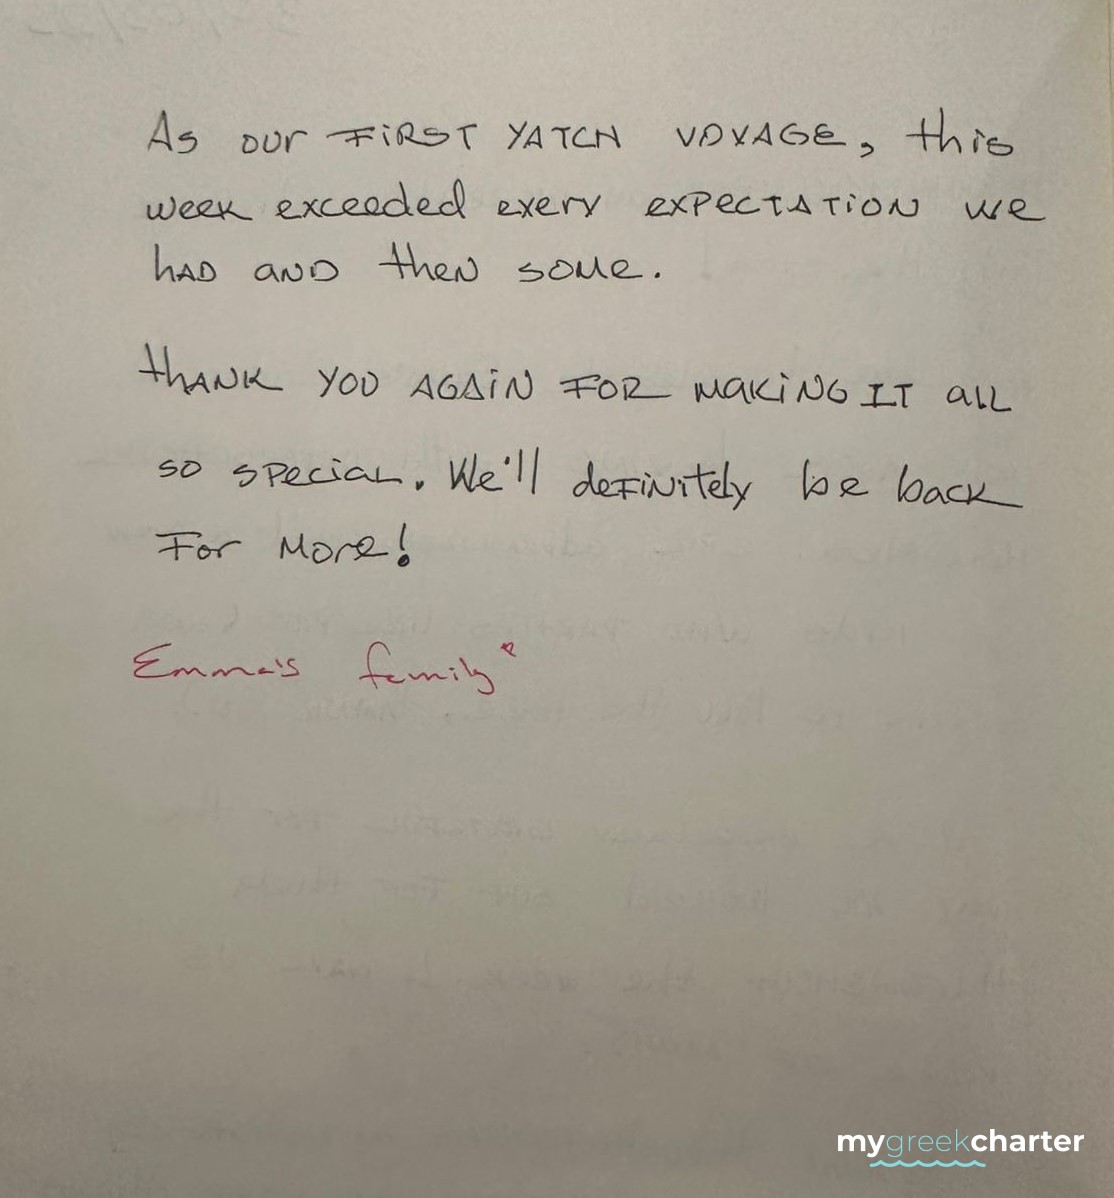 As our FIRST YATCH VOYAGE, this
week exceeded exery expectation we
had and then some.
Thank you again for making it all
so special. We'll definitely be back
for more!
Emma's family
mygreekcharter